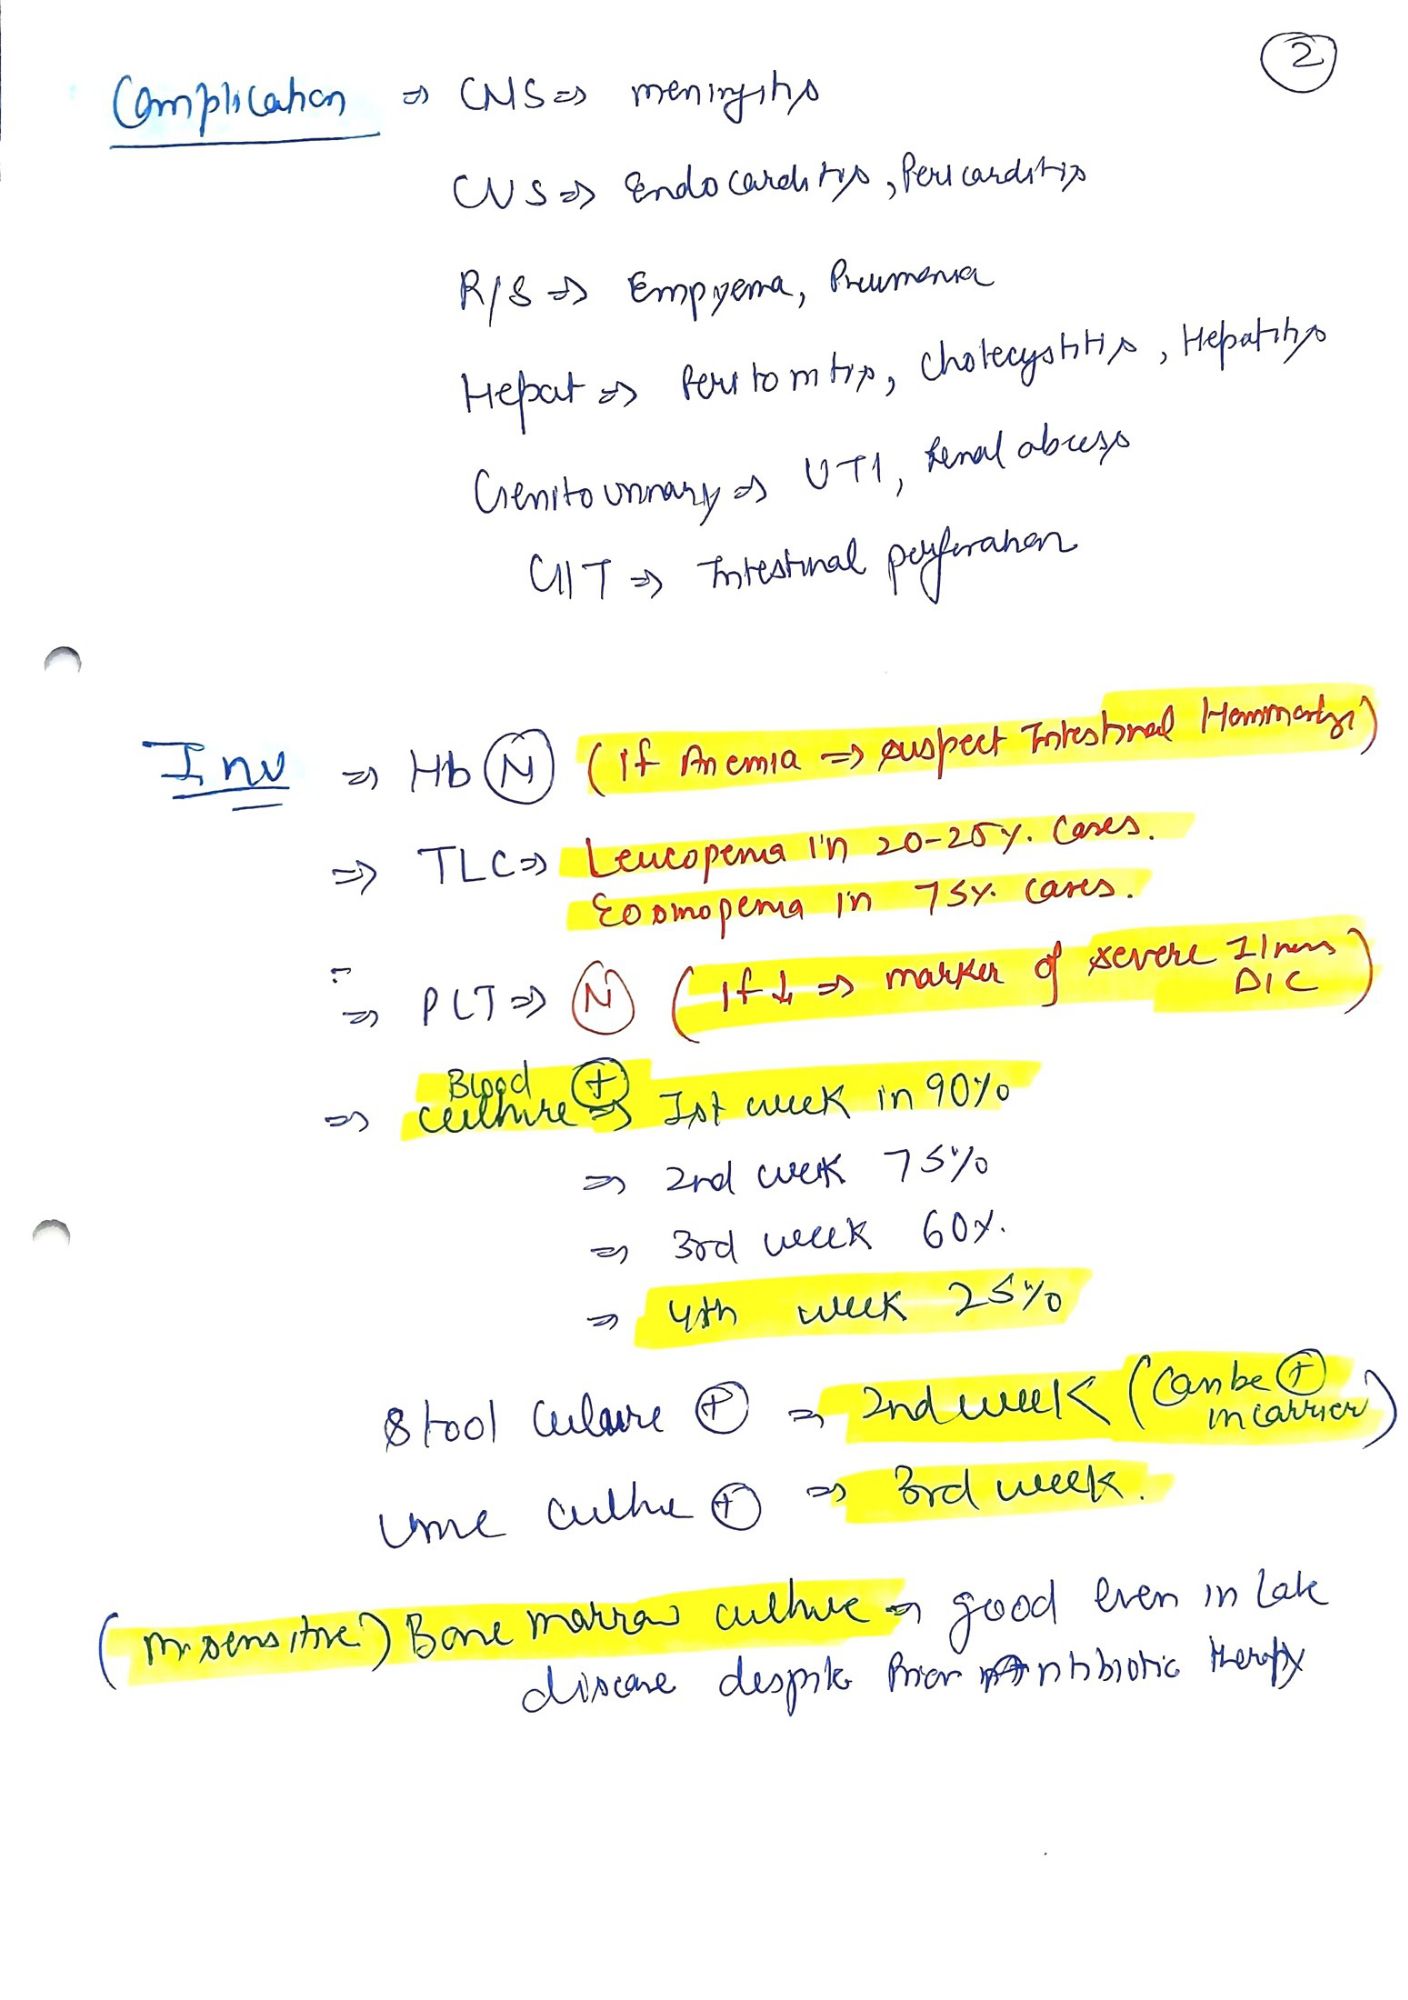 2
Complication ⇒ CNS ⇒ meningitis
CVS ⇒ Endocarditis, Pericarditis
R/S ⇒ Empyema, Pneumonia
Hepat ⇒ Peritonitis, Cholecystitis, Hepatitis
Genitourinary ⇒ UTI, Renal abscess
GIT ⇒ Intestinal perforation
Inv ⇒ Hb N (If Anemia ⇒ suspect Intestinal
⇒ TLC ⇒ Leucopenia in 20-25%. Cases.
Eosinopenia in 75%. cases.
⇒ PLT ⇒ N (If ↓ ⇒ marker of severe Illness
DIC)
Blood
⇒ culture + ⇒ Ist week in 90%
⇒ 2nd week 75%
⇒ 3rd week 60%.
⇒ 4th week 25%
Stool Culture + ⇒ 2nd week (Can be +
in carrier)
Urine culture + ⇒ 3rd week.
(M. sensitive) Bone marrow culture ⇒ good even in late
disease despite Prior Antibiotic therapy